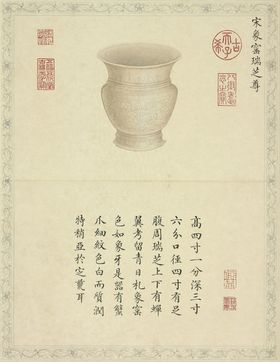 宋象窰瑞芝尊
古希天子
八徵耄念之寶
高四寸一分深三寸
六分口徑四寸有足
腹周瑞芝上下有蟬
翼考留青日札象窰
色如象牙是器有蟹
爪細紋色白而質潤
特稍亞於定甆耳